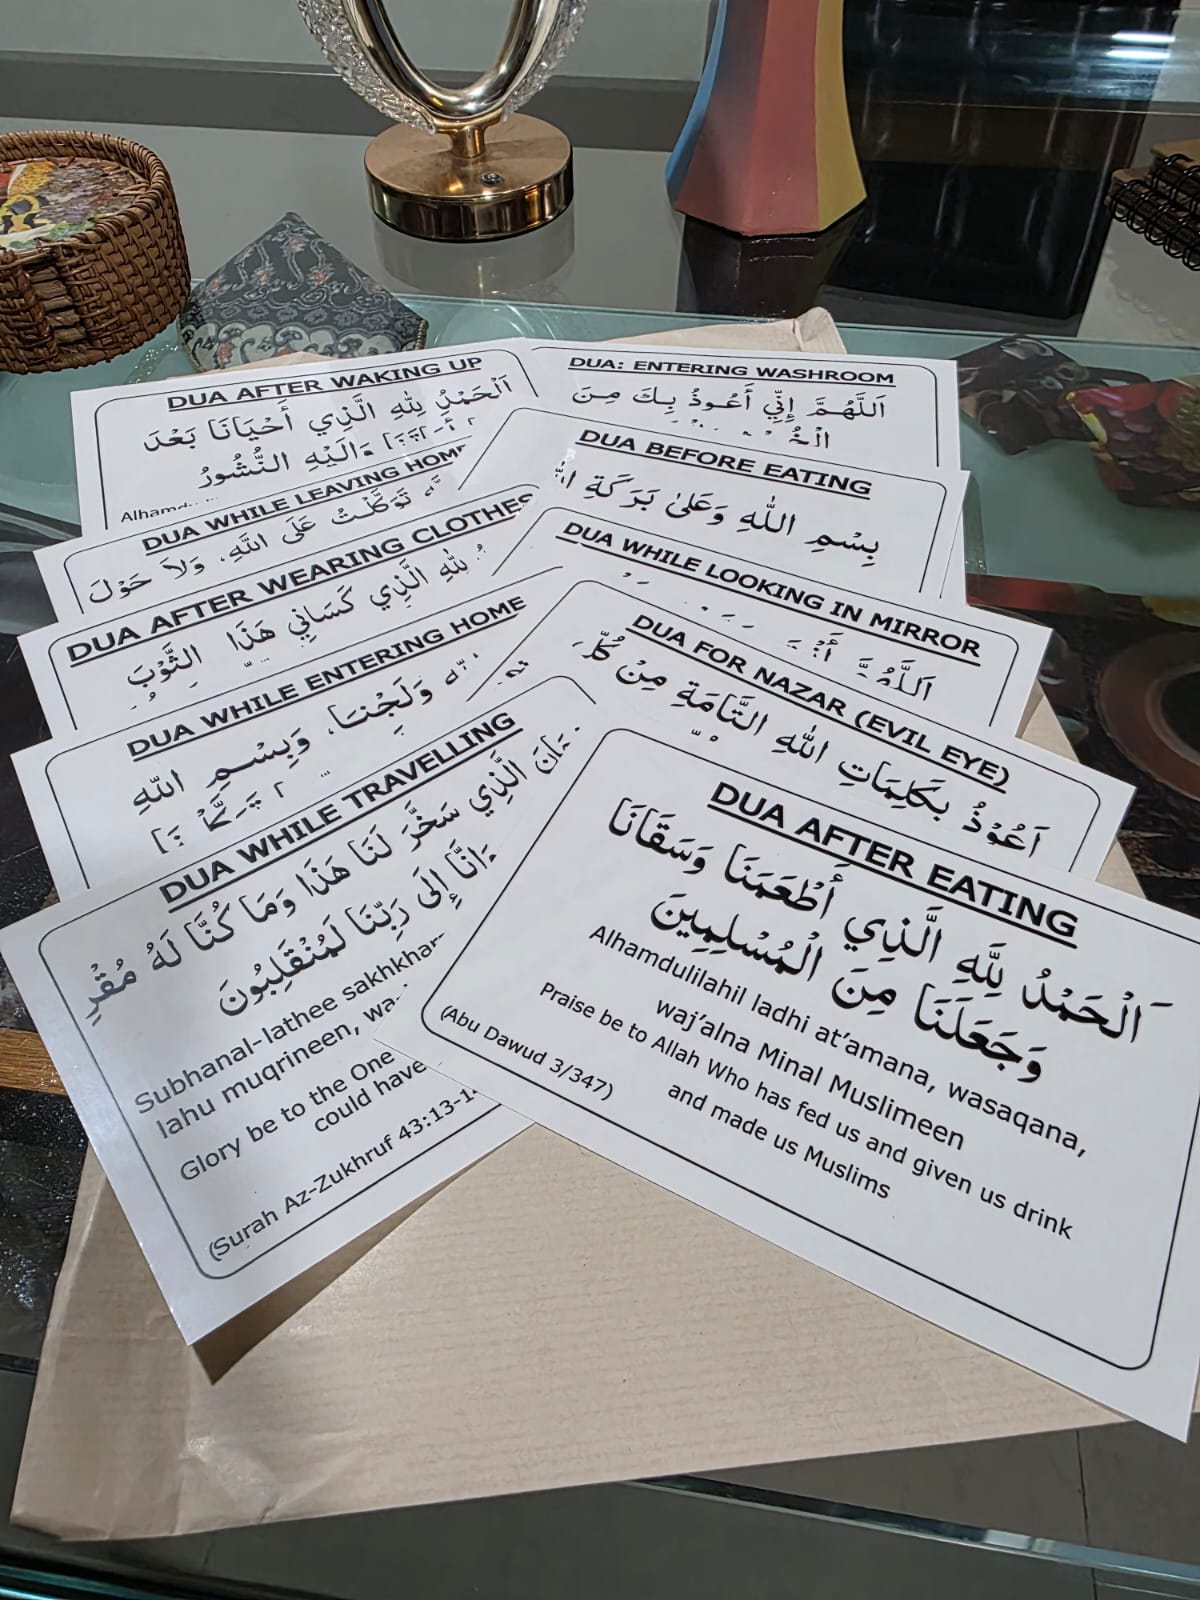 DUA AFTER WAKING UP
اَلْحَمْدُ لِلّٰهِ الَّذِي أَحْيَانَا بَعْدَ
وَالَيْهِ النُّشُورُ
DUA: ENTERING WASHROOM
اَللَّهُمَّ إِنِّي أَعُوذُ بِكَ مِنَ
DUA WHILE LEAVING HOME
تَوَكَّلْتُ عَلَى اللّٰهِ، وَلاَ حَوْلَ
DUA BEFORE EATING
بِسْمِ اللّٰهِ وَعَلىٰ بَرَكَةِ
DUA AFTER WEARING CLOTHES
لِلّٰهِ الَّذِي كَسَانِي هَذَا الثَّوْبَ
DUA WHILE LOOKING IN MIRROR
اَللَّهُمَّ
DUA WHILE ENTERING HOME
وَلَجْنَا، وَبِسْمِ اللّٰهِ
DUA FOR NAZAR (EVIL EYE)
اَعُوْذُ بِكَلِمَاتِ اللّٰهِ التَّامَةِ مِنْ كُلِّ
DUA WHILE TRAVELLING
الَّذِي سَخَّرَ لَنَا هَذَا وَمَا كُنَّا لَهُ
وَانَّا إِلَى رَبِّنَا لَمُنْقَلِبُونَ
Subhanal-lathee
lahu muqrineen,
Glory be to the One
could have
(Surah Az-Zukhruf
DUA AFTER EATING
اَلْحَمْدُ لِلَّهِ الَّذِي أَطْعَمَنَا وَسَقَانَا
وَجَعَلَنَا مِنَ الْمُسْلِمِينَ
Alhamdulilahil ladhi at'amana, wasaqana,
waj'alna Minal Muslimeen
Praise be to Allah Who has fed us and given us drink
and made us Muslims
(Abu Dawud 3/347)